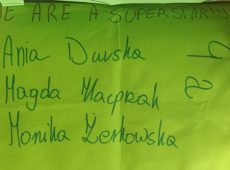 E ARE A SUPERSTAR!!!
Ania Durska
Magda Kacprzak
Monika Żerkowska